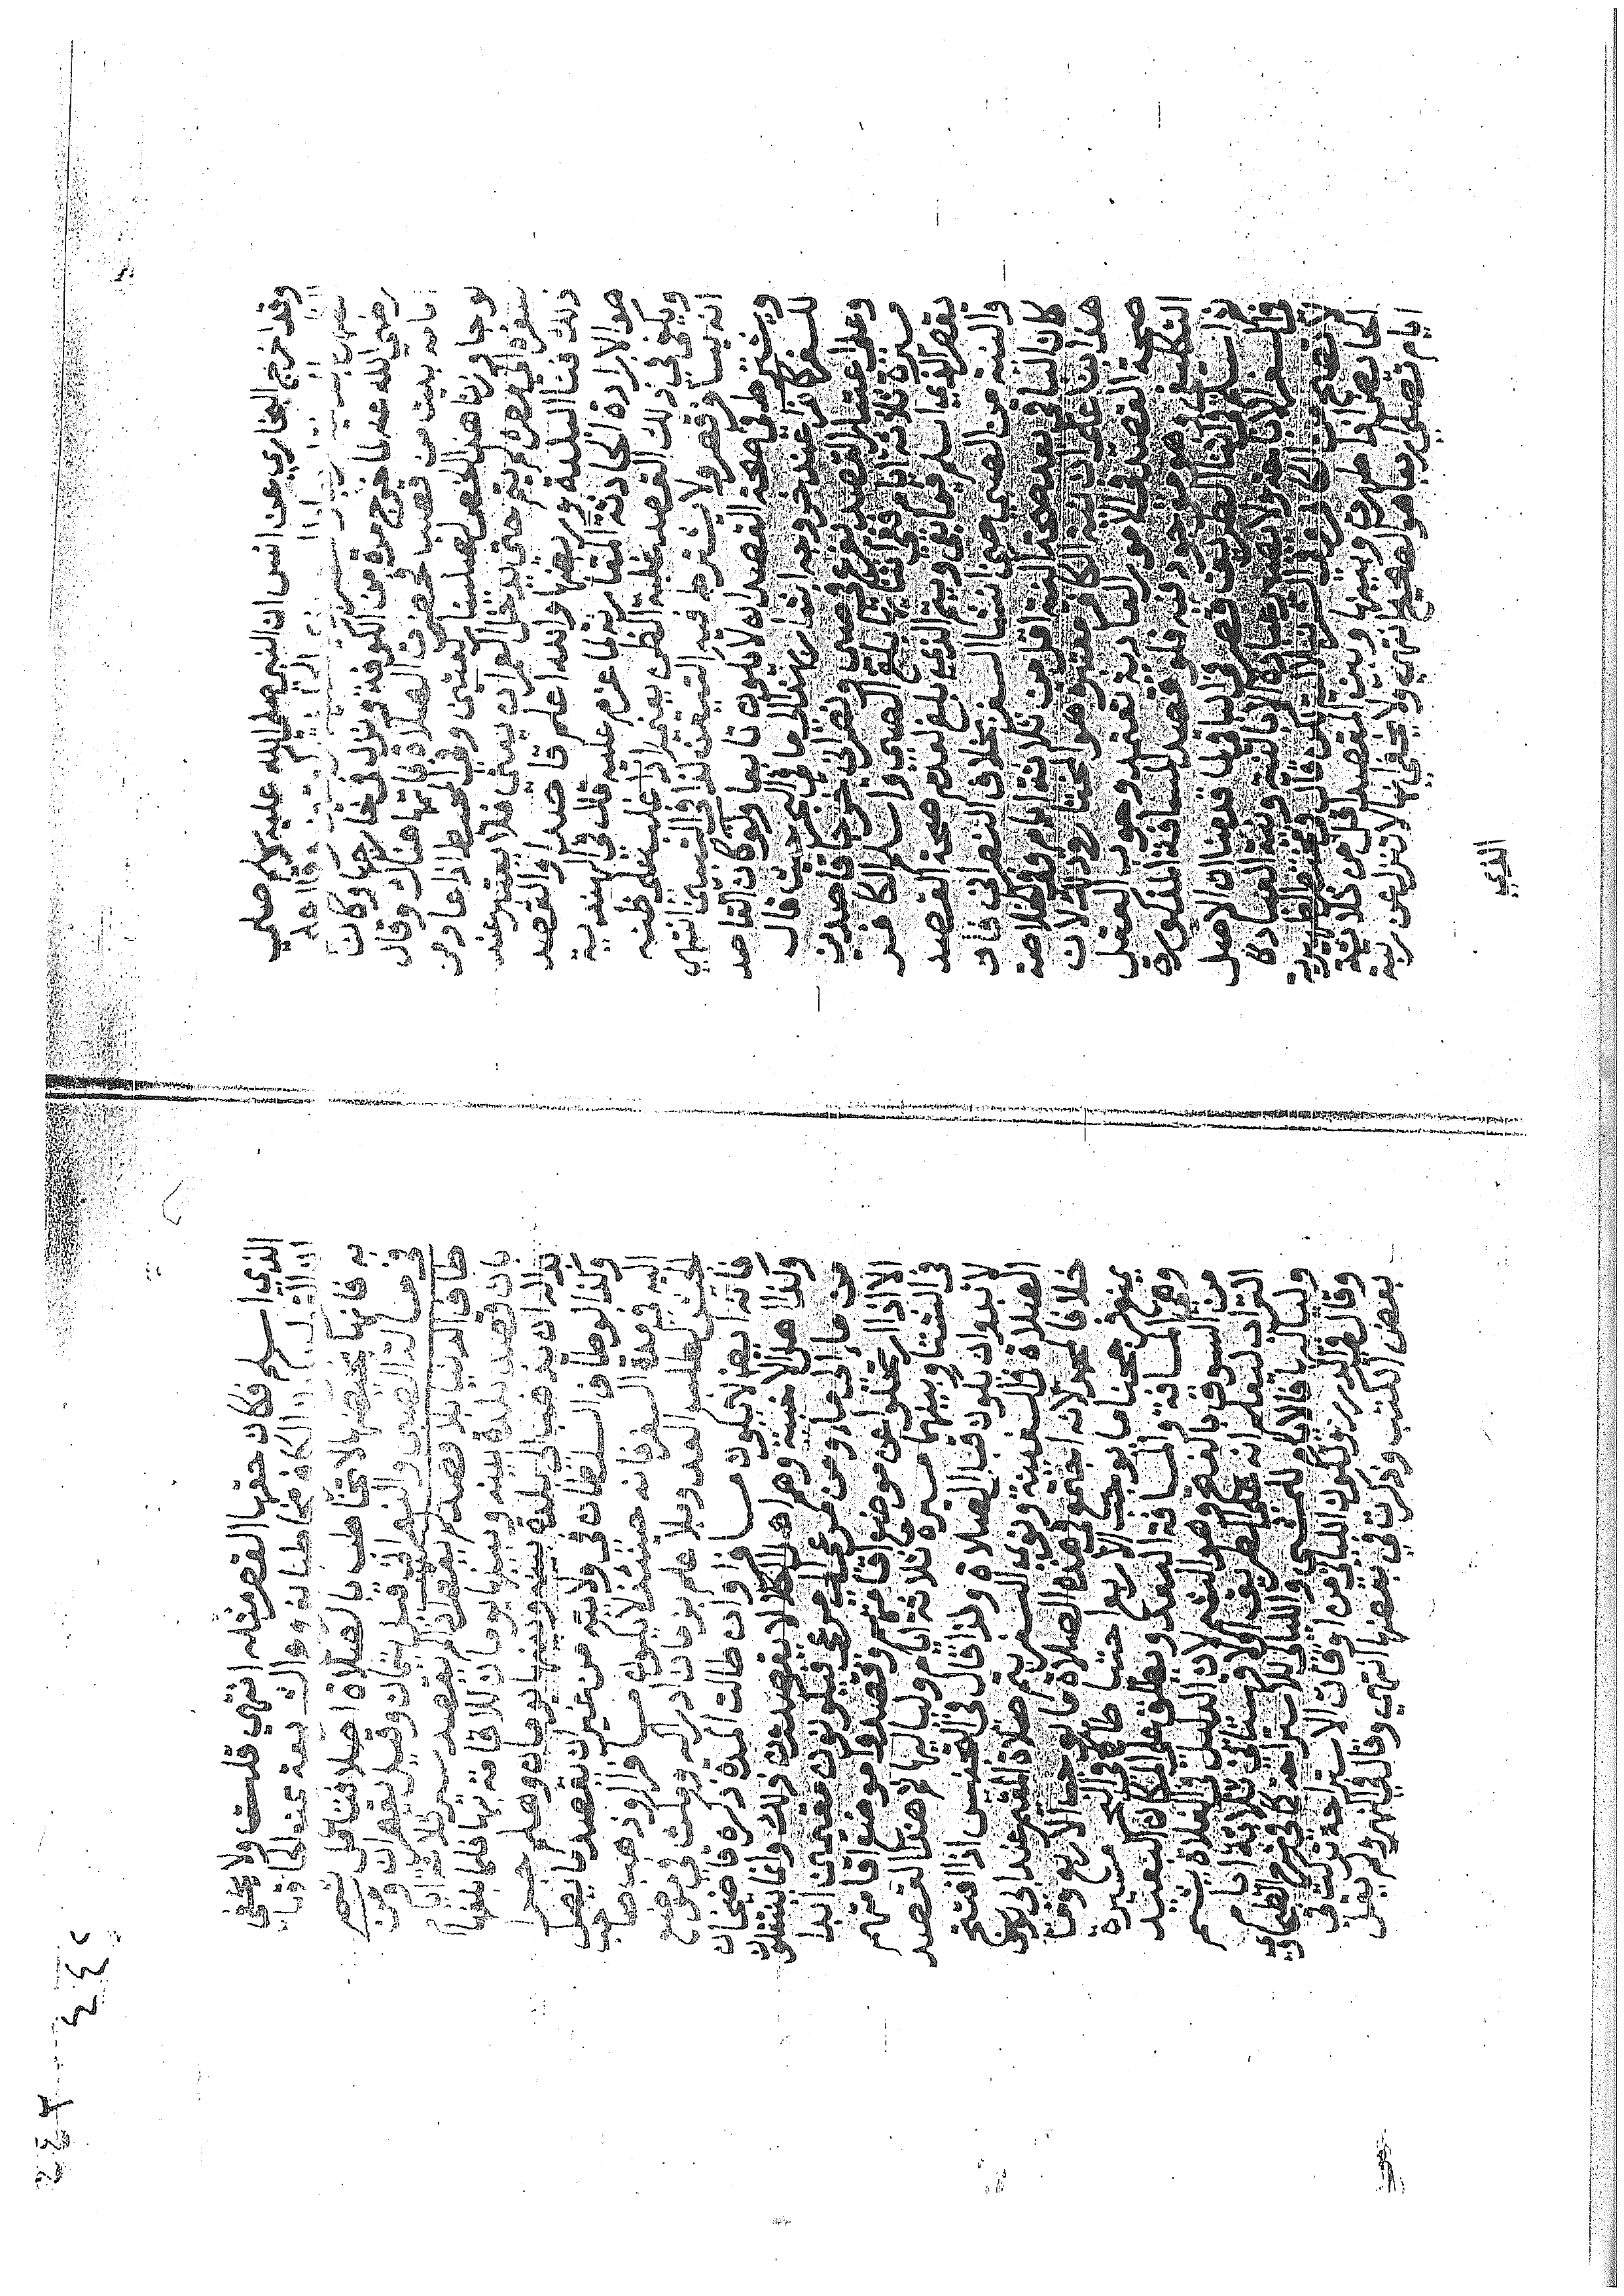 وقد اخرج البخاري عن انس ان النبي صلى الله عليه وسلم صلى
رضي الله عنه لما خرج مرة من الكوفة ونزل في خارجها وكان
بانه بيت من قصبا فحضرت الصلاة فاتمها هناك وقال
لو جاوزنا هذا الخص لصلينا ركعتين وفي المحيط اذا عاد من
سفره الى مصره لم يتم حتى يدخل العمران يعني فلا يعتبر عند
ذلك فنا البلدة وربضها والله اعلم قاصدا والقصد
هو الارادة الحادثة المقارنة لما عزم عليه قال في الهندية
ويكفي في ذلك القصد غلبة الظن يعني اذا غلب على ظنه
انه يسافر قصر ولا يشترط فيه التيقن كذا في التبيين انتهى
ويشترط في صحة القصد ان لا يكون تابعا ولو كان القاصد
للسفر كافر عند خروجه اشار بهذا الى ما في البحر حيث قال
وعلى اعتبار القصد تفرع في صبي ونصراني خرجا قاصدين
مسيرة ثلاثة ايام ففي اثنائها بلغ الصبي واسلم الكافر
يقصر الذي اسلم فيما بقي ويتم الذي بلغ لعدم صحة القصد
والنية من الصبي حين انشا السفر بخلاف النصراني فان
كان الباقي بعد صحة النية اقل من ثلاثة ايام وفي الخلاصة
هذا ان على ان نية الكافر معتبرة هو المختار وذلك لان
صحة القصد في الامور العادية تعتمد وجود العقل
التكليف وهو موجود فيه فلو قصد المسافة المذكورة
ثم اسلم في اثنا الطريق قصر في الباقي لما قدمنا ان الاصل
في السفر الاباحة ولا يصير عبادة الا بالنية ونية العبادة
الحائض اذا طهرت وبينها وبين المقصد اقل من ثلاثة
ايام تصلي اربعا هو الصحيح انتهى ولا يخفى انها لا تنزل عن رتبة
الذي
الذي اسلم فكان حقها القصر مثله انتهى قلت ولا يخفى
به فانها تختص بالاحتياط بالصلاة اصلا فتامل نعم
في مسئلة الصبي والنصراني قيل يتمان وقيل يقصران ومن
طاف الدنيا بلا قصد لم يقصر اذ لم يقصد سير ثلاثة ايام
بان قصد بلدة بينه وبينها يومان للاقامة بها فلما بلغها
بدا له ان يذهب الى بلدة بينه وبينها يومان وهلم جرا
وكذا لو طاف السلطان في ولايته من غير ان يقصد ما يصل
اليه في مدة السفر فانه حينئذ لا يكون مسافرا او ذهب صاحب
الجيش لطلب العدو ولا علم بزمان ادركه ومكث في موضع
فانه ايضا لا يكون مسافرا وان طالت المدة ذكره قاضيخان
وكذا اهل الاخبية وهم اهل الكلا لا يقصدون ذلك وانما ينتقلون
من ماء الى ماء ومن مرعى الى مرعى فيكونون مقيمين ابدا
الا اذا ارتحلوا عن موضع اقامتهم وقصدوا موضع اقامتهم
في الشتا وبينهما مسيرة ثلاثة ايام ولياليها ثم هذا القصد
لا بد وان يكون قبل الصلاة ولذا قال في التجنيس اذا افتتح
الصلاة في السفينة ونوى السفر يتم صلاة المقيم عند ابي يوسف
خلافا لمحمد لانه اجتمع في هذه الصلاة ما يوجب الاربع وما
يمنع فرجحنا ما يوجب الاربع احتياطا كذا في البحر مسيرة
وهي المسافة والمسافة البعد ويطلق على المكان البعيد
من السوف بالفتح وهو الشم لان الدليل في الفلاة يشم
التراب ليعلم انه على الطريق او لا وسيا في ثلاثة ايام
ولياليها فالايام للمشي والليالي للاستراحة كما في شرح الطحاوي
وقال في الدرر ولكون الليالي من اوقات الاستراحة تركت في
بعض الكتب وذكرت في بعضها انتهى وقال في النهر ولم يقل